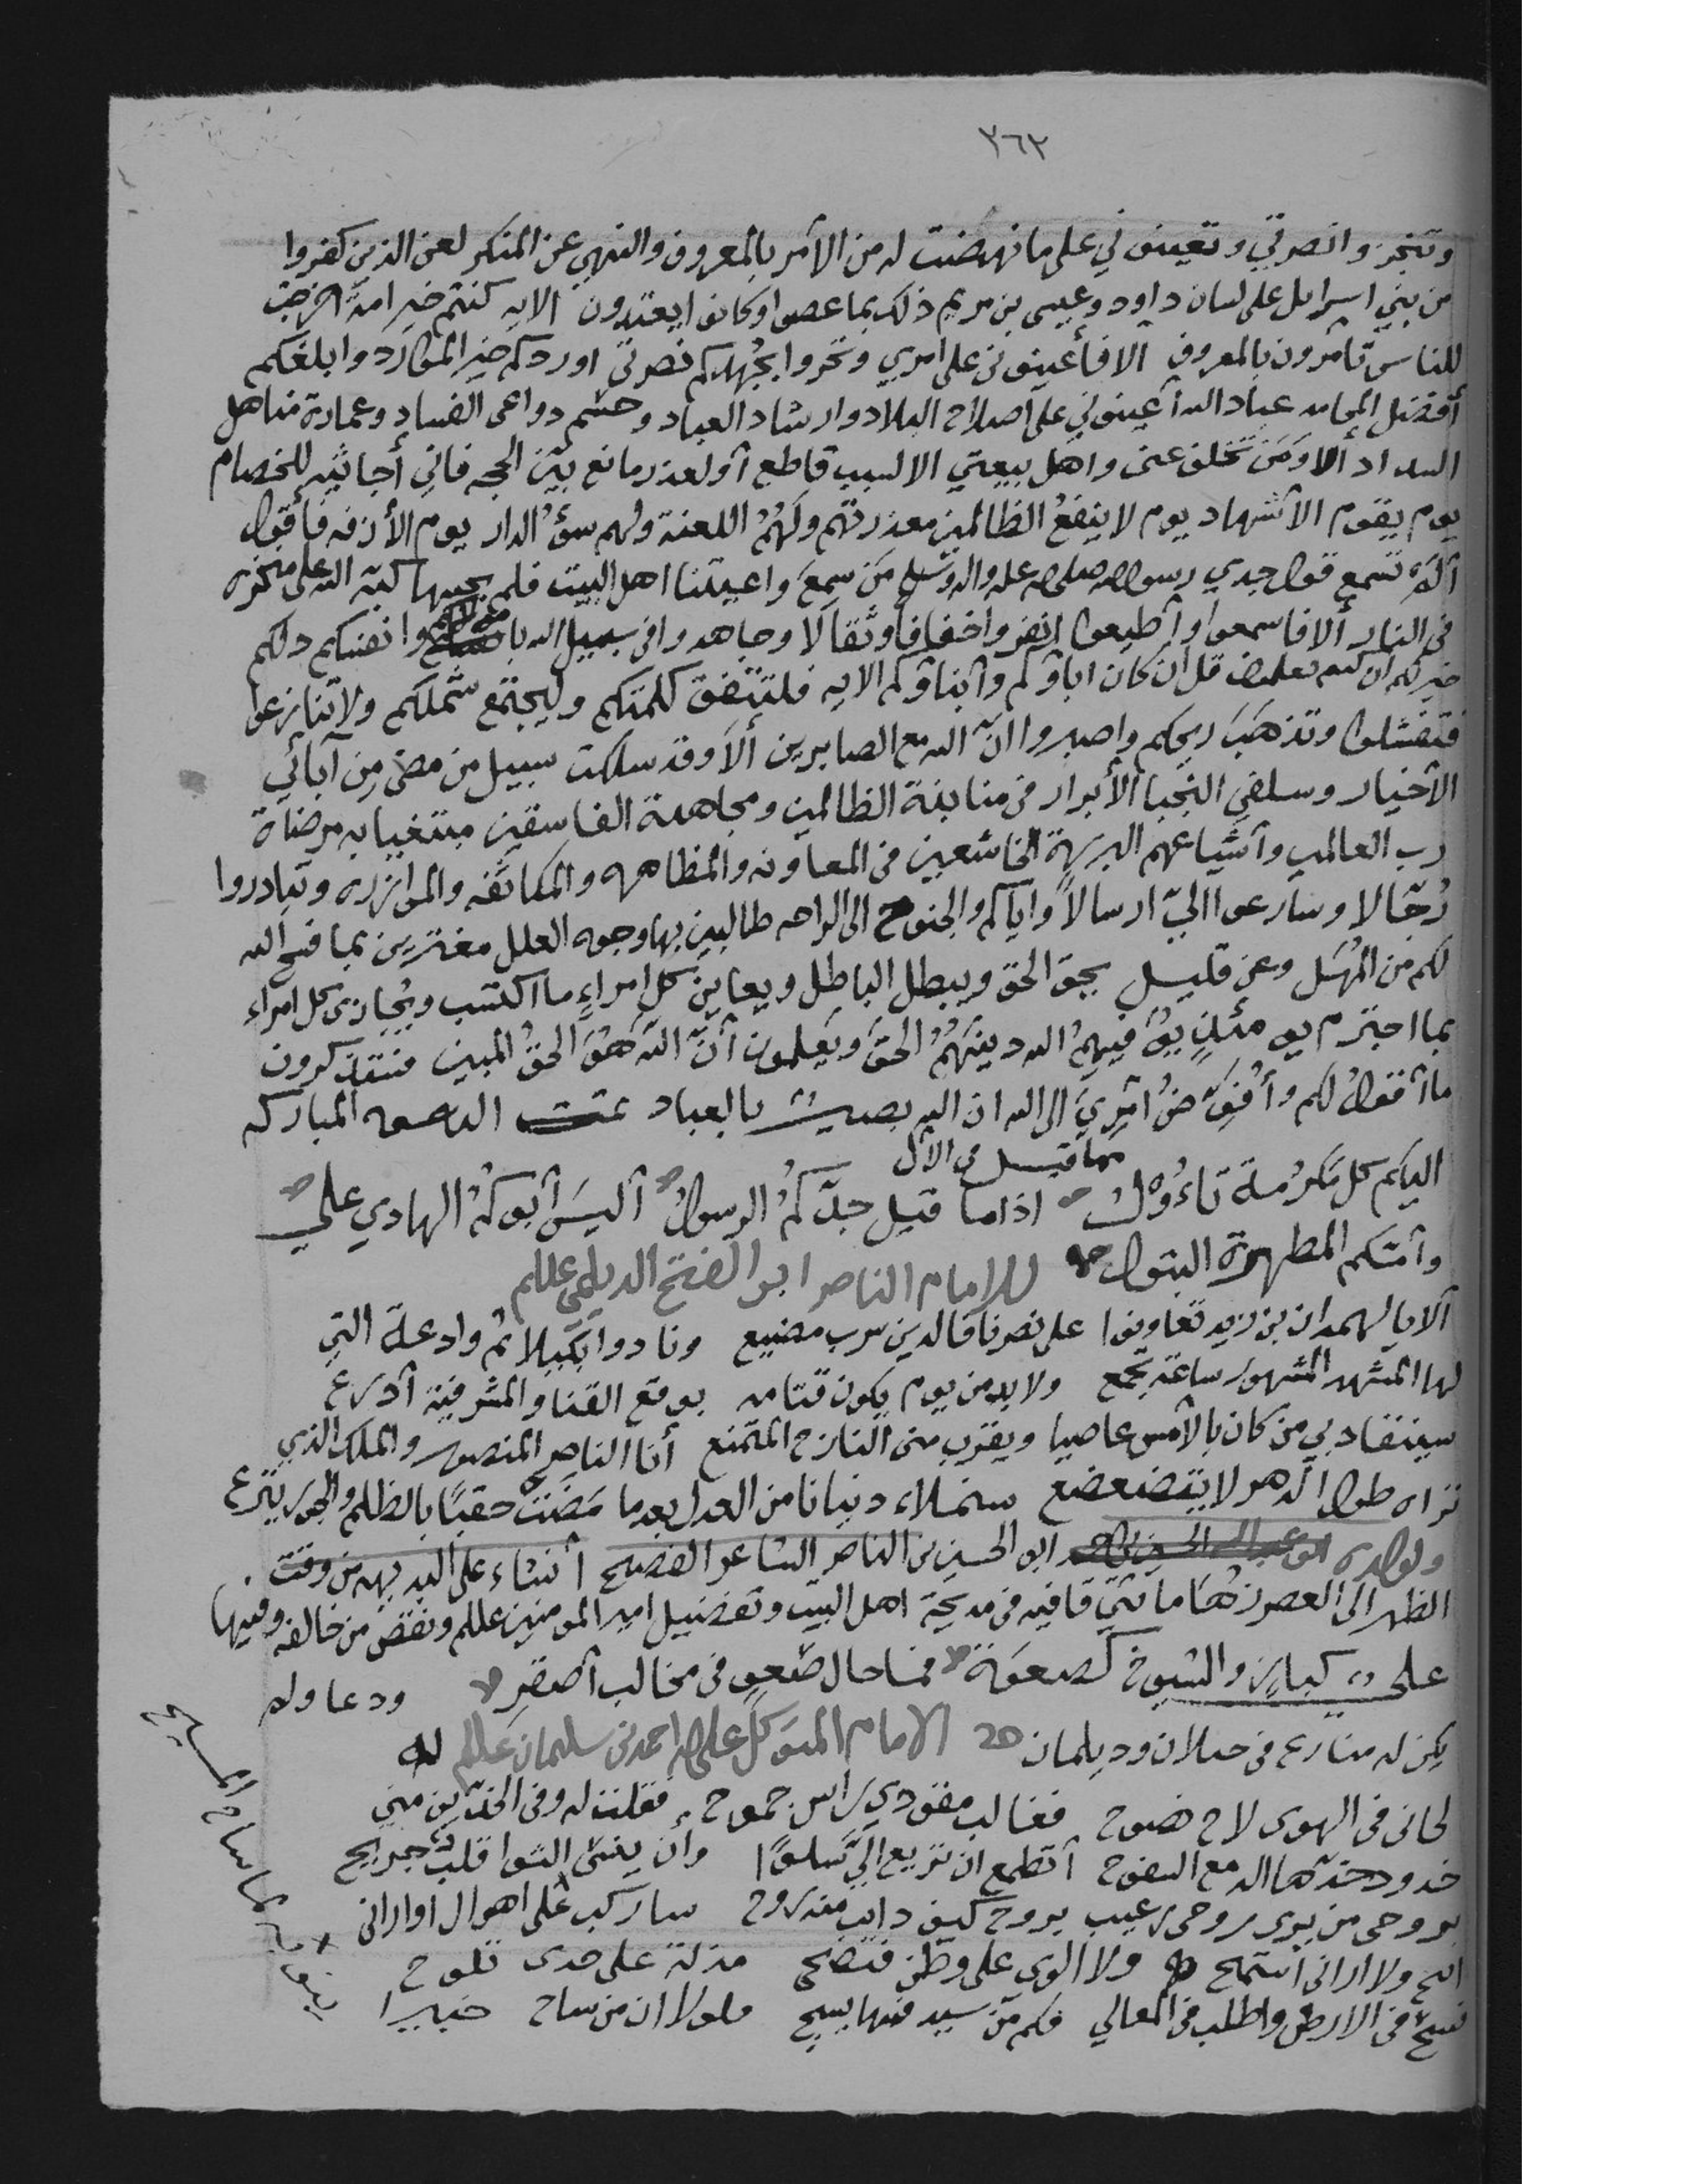 ٣٦٣
وتنجز وانصرتي وتعينوني على ما نهضت له من الأمر بالمعروف والنهي عن المنكر لعن الذين كفروا
من بني اسرايل على لسان داود وعيسى بن مريم ذلك بما عصوا وكانوا يعتدون الايه كنتم خير امة اخرجت
للناس تأمرون بالمعروف الا فأعينوني على امري وتحروا بجهدكم نصرتي اوردكم خير الموارد وابلغكم
أفضل المحامد عباد الله أعينوني على اصلاح البلاد وارشاد العباد وحسم دواعي الفساد وعمارة مناهل
السداد ألا ومن تخلف عني واهل بيعتي الا لسبب قاطع او لعذر مانع بين الحجه فاني أجاثيه للخصام
يوم يقوم الأشهاد يوم لا ينفع الظالمين معذرتهم ولهم اللعنة ولهم سوء الدار يوم الأزفه فأقول
ألم تسمع قول جدي رسول الله صلى الله عليه واله وسلم من سمع واعيتنا اهل البيت فلم يجبها كبه الله على منخره
في النار ألا فاسمعوا وأطيعوا انفروا خفافا وثقالا وجاهدوا في سبيل الله باموالكم وانفسكم ذلكم
خير لكم ان كنتم تعلمون قل ان كان اباؤكم وأبناؤكم الايه فلتتفق كلمتكم وليجتمع شملكم ولا تنازعوا
فتفشلوا وتذهب ريحكم واصبروا ان الله مع الصابرين ألا وقد سلكت سبيل من مضى من آبائي
الأخيار وسلفي النجبا الأبرار في منابذة الظالمين ومجاهدة الفاسقين مبتغيا به مرضاة
رب العالمين وأشياعهم البررة الخاشعين في المعاونه والمظاهره والمكاتفه والموازره وتبادروا
رجالا وسارعوا اليّ ارسالا واياكم والجنوح الى الراحه طالبين بها وجوه العلل مغترين بما فسح الله
لكم من المهل وعن قليل يحق الحق ويبطل الباطل ويعاين كل امراء ما اكتسب ويجازى كل امراء
بما اجترم يومئذ يوفيهم الله دينهم الحق ويعلمون أن الله هو الحق المبين فستذكرون
ما أقول لكم وأفوض أمري الى الله ان الله بصير بالعباد تمت الدعوه المباركه
مما قيل في الآل
اليكم كل مكرمة تاءول اذا ما قيل جدكم الرسول أليس أبوكم الهادي علي
وأمكم المطهرة البتول للامام الناصر ابو الفتح الديلمي عللم
ألا يا لهمدان بن زيد تعاونوا على نصرنا فالدين سرب مضيع ونادوا بكيلا ثم وادعة التي
لها المشهد المشهور ساعة تجمع ولا بد من يوم يكون قتامه بوقع القنا والمشرفية أدرع
سينقاد بي من كان بالأمس عاصيا ويقرب مني النازح المتمنع أنا الناصر المنصور والملك الذي
تراه طول الدهر لا يتضعضع سنملاء دنيانا من العدل بعدما مضت حقبا بالظلم والجور تترع
ولولده ابو الحسين بن الناصر الشاعر الفصيح أنشاء على البديهه من وقت
الظهر الى العصر زهاما ئتي قافيه في مديحة اهل البيت وتفضيل امير المومنين عللم ونقض من خالفه وفيها
على كباز والشيوخ كصعوة فما حال صعو في مخالب أصقر ودعا ولم
يكن له منازع في جيلان وديلمان الامام المتوكل على الله احمد بن سليمان عللم له
لحانى في الهوى لاح نصوح فغالب مقودي راس جموح فقلت له وفي الخدين مني
خدود خدها الدمع السفوح أتطمع ان تريع اليّ سلوا وأن ينسى النوا قلب جريح
بروحى من يرى روحى رعيب يروح كيف دايب مقدروح ساركب على اهوال اوارانى
انح ولا ارانى أستميح ولا الوى على وطن فتضحى مذلة على خدى تلوح
فسح في الارض واطلب في المعالي فكم من سيد فيها يسيح ولولا ان من ساح خبيرا